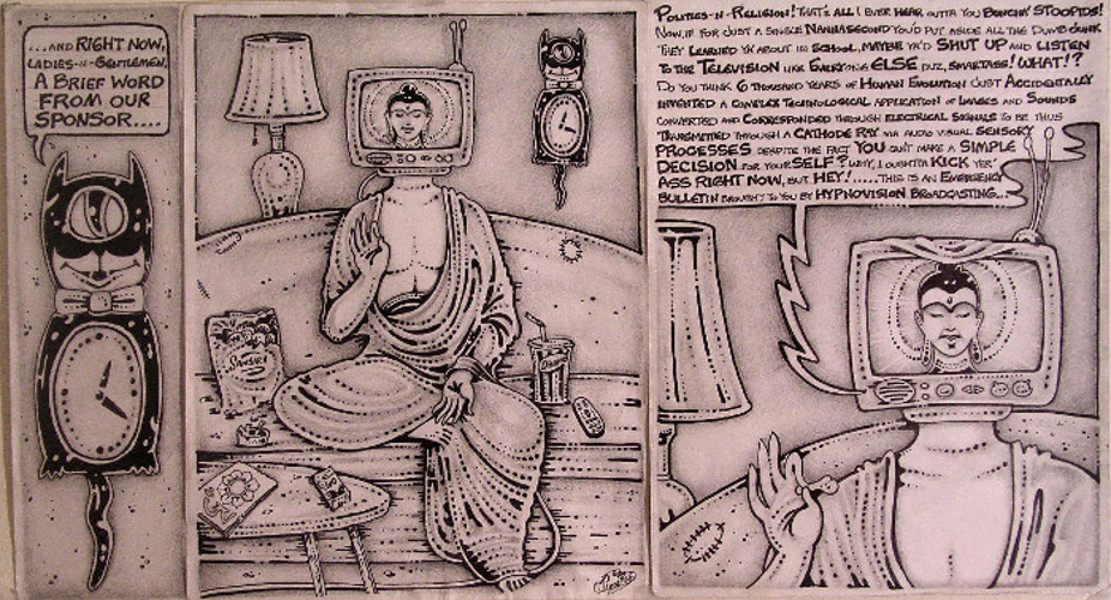 ...AND RIGHT NOW,
LADIES-N-GENTLEMEN,
A BRIEF WORD
FROM OUR
SPONSOR....
POLITICS-N-RELIGION! THAT'S ALL I EVER HEAR OUTTA YOU BUNCHA' STOOPIDS!
NOW, IF FOR JUST A SINGLE NANNASECOND YOU'D PUT ASIDE ALL THE DUMB JUNK
THEY LEARNED YA' ABOUT IN SCHOOL, MAYBE YA'D SHUT UP AND LISTEN
TO THE TELEVISION LIKE EVERYONE ELSE DUZ, SMARTASS! WHAT!?
DO YOU THINK 6 THOUSAND YEARS OF HUMAN EVOLUTION JUST ACCIDENTALLY
INVENTED A COMPLEX TECHNOLOGICAL APPLICATION OF IMAGES AND SOUNDS
CONVERTED AND CORRESPONDED THROUGH ELECTRICAL SIGNALS TO BE THUS
TRANSMITTED THROUGH A CATHODE RAY VIA AUDIO VISUAL SENSORY
PROCESSES DESPITE THE FACT YOU CAN'T MAKE A SIMPLE
DECISION FOR YOUR SELF? WHY, I OUGHTTA KICK YER'
ASS RIGHT NOW, BUT HEY!.....THIS IS AN EMERGENCY
BULLETIN BROUGHT TO YOU BY HYPNOVISION BROADCASTING...